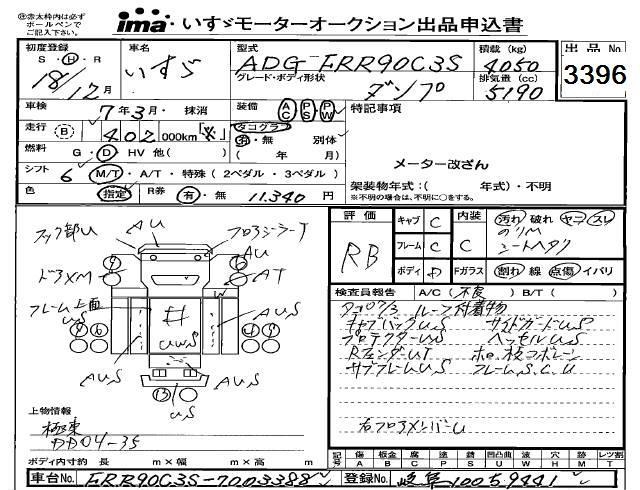 ㊟赤太枠内は必ず
ボールペンで
ご記入下さい。
ima・いすゞモーターオークション出品申込書
初度登録 S・H・R 18/12月
車名 いすゞ
型式 ADG-FRR90C3S
積載 (kg) 4050
グレード・ボディ形状 ダンプ
排気量 (cc) 5190
出品No 3396
車検 7年3月・抹消
装備 AC PS PW
特記事項
走行 (B) 402,000km
タコグラフ 有・無 別体 (年 月)
燃料 G・D・HV 他( )
メーター改ざん
シフト 6 M/T・A/T・特殊(2ペダル・3ペダル)
架装物年式:( 年式)・不明
色 指定 R券 有・無 11.340円
※不明の場合は、不明に○をする。
評価 RB
キャブ C
内装 C
汚れ 破れ ヤニ スレ
フレーム C
シートヘタク
ボディ D
Fガラス 割れ 線 点傷 イバリ
検査員報告 A/C(不良) B/T( )
ルーフ付着物
キャブバックUS サイドガードUS
プロテクターUS ベッセルUS
RフェンダーUT
サブフレームUS フレームS.C.U
右フロアメンバーU
フック部U AU
AU
ドアXM AT
フレーム上面US
AUS AUS
US
上物情報
極東
DD04-35
ボディ内寸約 長 m×幅 m×高 m
記号 傷A 板金B 腐C 塗P 錆S 凹凸曲U 波W 穴H 跡M レツ割T
車台No. FRR90C3S-7003388
登録No. 岐阜100そ9441